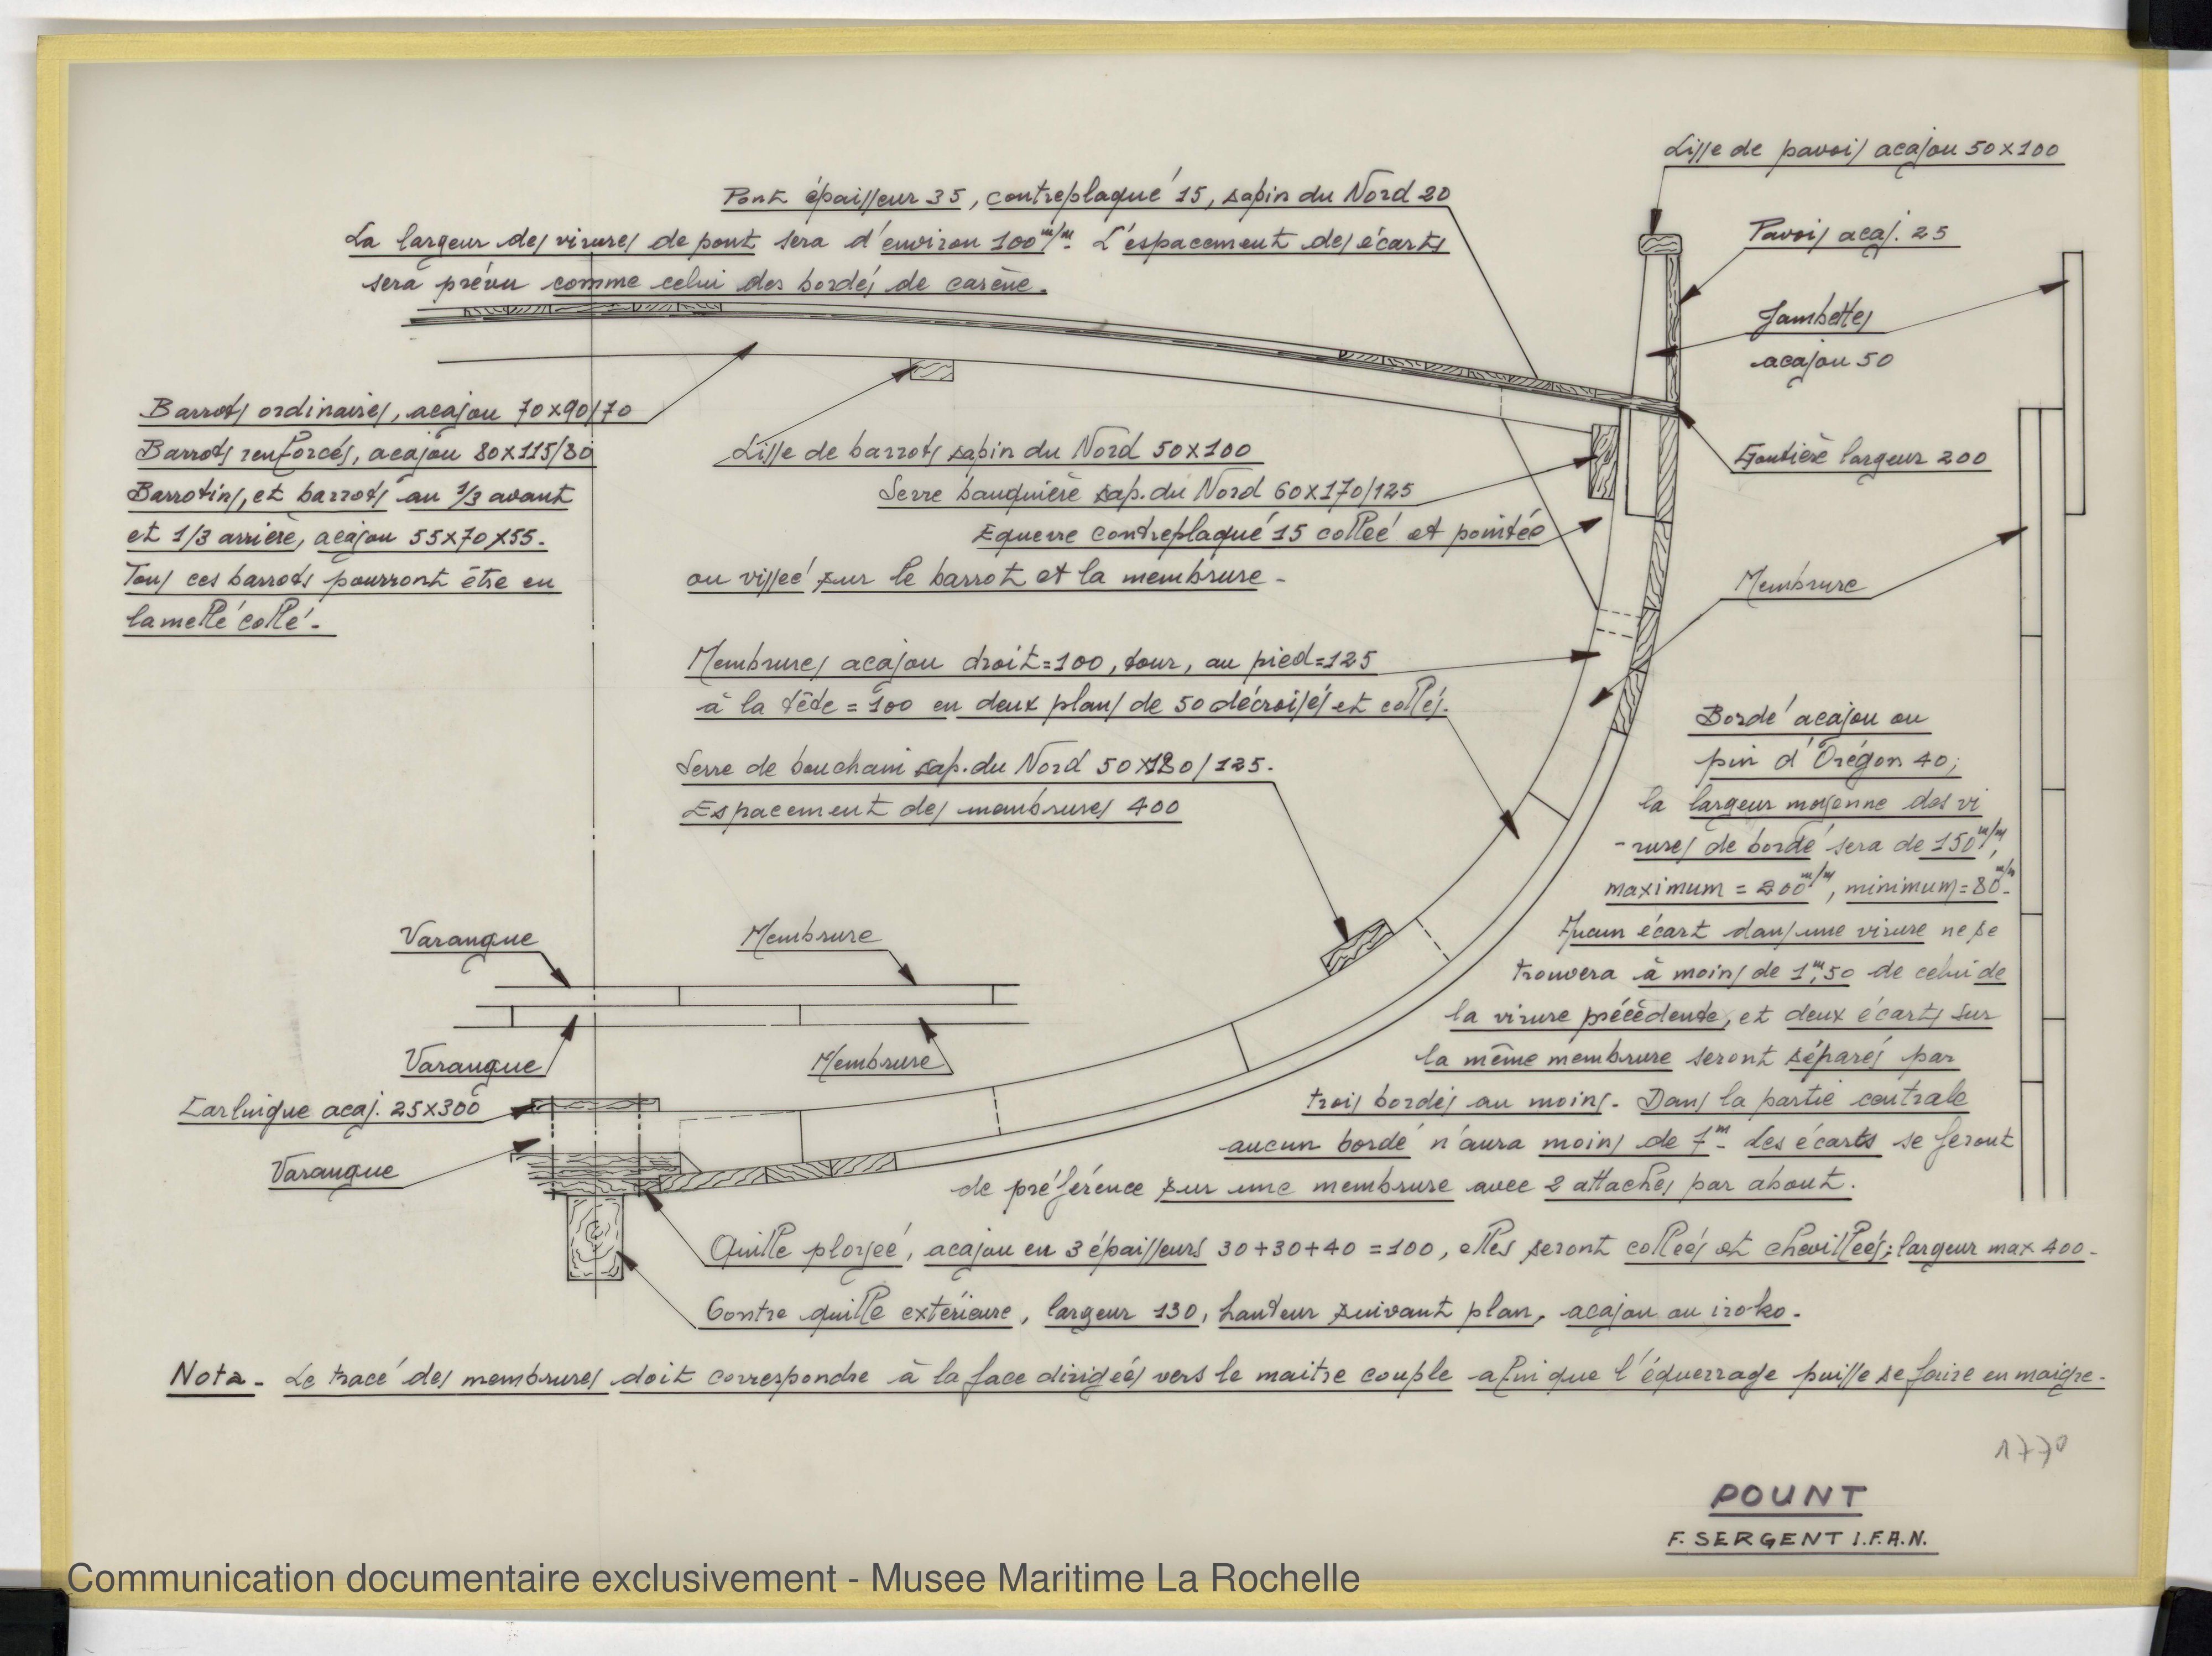 Lisse de pavois acajou 50x100
Pont épaisseur 35, contreplaqué 15, sapin du Nord 20
La largeur des virures de pont sera d'environ 100 m/m. L'espacement des écarts
sera prévu comme celui des bordés de carène.
Pavois acaj. 25
Jambettes
acajou 50
Barrots ordinaires, acajou 70x90/70
Barrots renforcés, acajou 80x115/80
Barrotins, et barrots au 1/3 avant
et 1/3 arrière, acajou 55x70x55.
Tous ces barrots pourront être en
lamellé collé.
Lisse de barrots sapin du Nord 50x100
Serre bauquière sap. du Nord 60x170/125
Equerre contreplaqué 15 collée et pointée
ou vissée sur le barrot et la membrure.
Goutière largeur 200
Membrure
Membrures acajou droit=100, tour, au pied=125
à la tête = 100 en deux plans de 50 décroisés et collés.
Serre de bouchain sap. du Nord 50x180/125.
Espacement des membrures 400
Bordé acajou ou
pin d'Orégon 40;
la largeur moyenne des vi
-rures de bordé sera de 150 m/m,
maximum = 200 m/m, minimum = 80 m/m.
Aucun écart dans une virure ne se
trouvera à moins de 1m,50 de celui de
la virure précédente, et deux écarts sur
la même membrure seront séparés par
trois bordés au moins. Dans la partie centrale
aucun bordé n'aura moins de 7m. Les écarts se feront
de préférence sur une membrure avec 2 attaches par about.
Varangue
Membrure
Varangue
Membrure
Carlingue acaj. 25x300
Varangue
Quille ployée, acajou en 3 épaisseurs 30+30+40=100, elles seront collées et chevillées; largeur max 400.
Contre quille extérieure, largeur 130, hauteur suivant plan, acajou ou iroko.
Nota. Le tracé des membrures doit correspondre à la face dirigées vers le maitre couple afin que l'équerrage puisse se faire en maigre.
1770
POUNT
F. SERGENT I.F.A.N.
Communication documentaire exclusivement - Musee Maritime La Rochelle